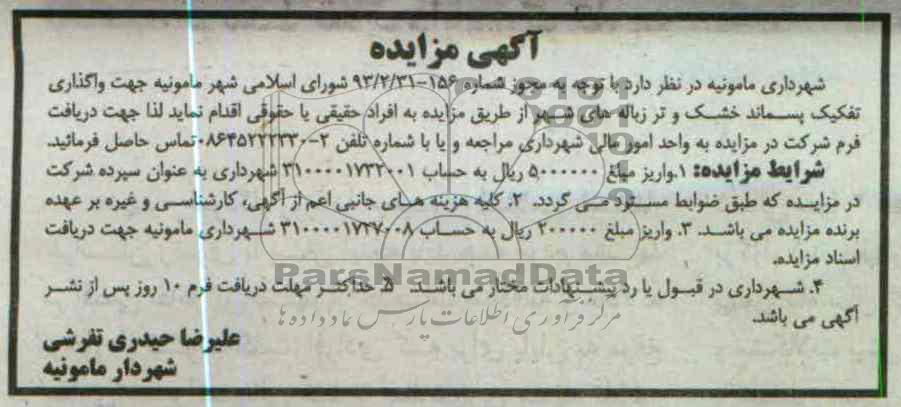 آگهی مزایده
شهرداری مامونیه در نظر دارد با توجه به مجوز شماره ۱۵۶-۹۳/۲/۳۱ شورای اسلامی شهر مامونیه جهت واگذاری
تفکیک پسماند خشک و تر زباله های شهر از طریق مزایده به افراد حقیقی یا حقوقی اقدام نماید لذا جهت دریافت
فرم شرکت در مزایده به واحد امور مالی شهرداری مراجعه و یا با شماره تلفن ۲-۰۸۶۴۵۲۲۲۳۳۰ تماس حاصل فرمائید.
شرایط مزایده: ۱.واریز مبلغ ۵۰۰۰۰۰۰ ریال به حساب ۳۱۰۰۰۰۱۷۳۲۰۰۱ شهرداری به عنوان سپرده شرکت
در مزایده که طبق ضوابط مسترد می گردد. ۲. کلیه هزینه های جانبی اعم از آگهی، کارشناسی و غیره بر عهده
برنده مزایده می باشد. ۳. واریز مبلغ ۲۰۰۰۰۰ ریال به حساب ۳۱۰۰۰۰۱۷۲۷۰۰۸ شهرداری مامونیه جهت دریافت
اسناد مزایده.
ParsNamadData
۴. شهرداری در قبول یا رد پیشنهادات مختار می باشد. ۵. حداکثر مهلت دریافت فرم ۱۰ روز پس از نشر
آگهی می باشد.
مرکز فرآوری اطلاعات پارس نماد داده ها
علیرضا حیدری تفرشی
شهردار مامونیه